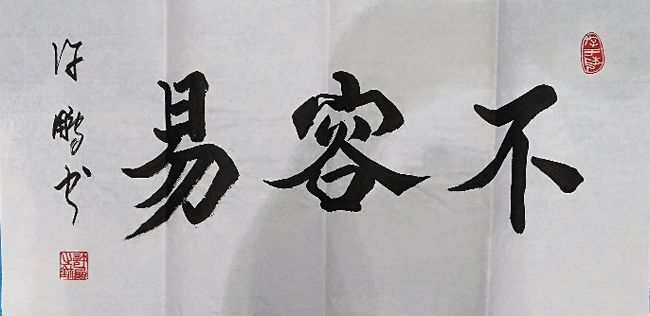 不容易
许鹏书